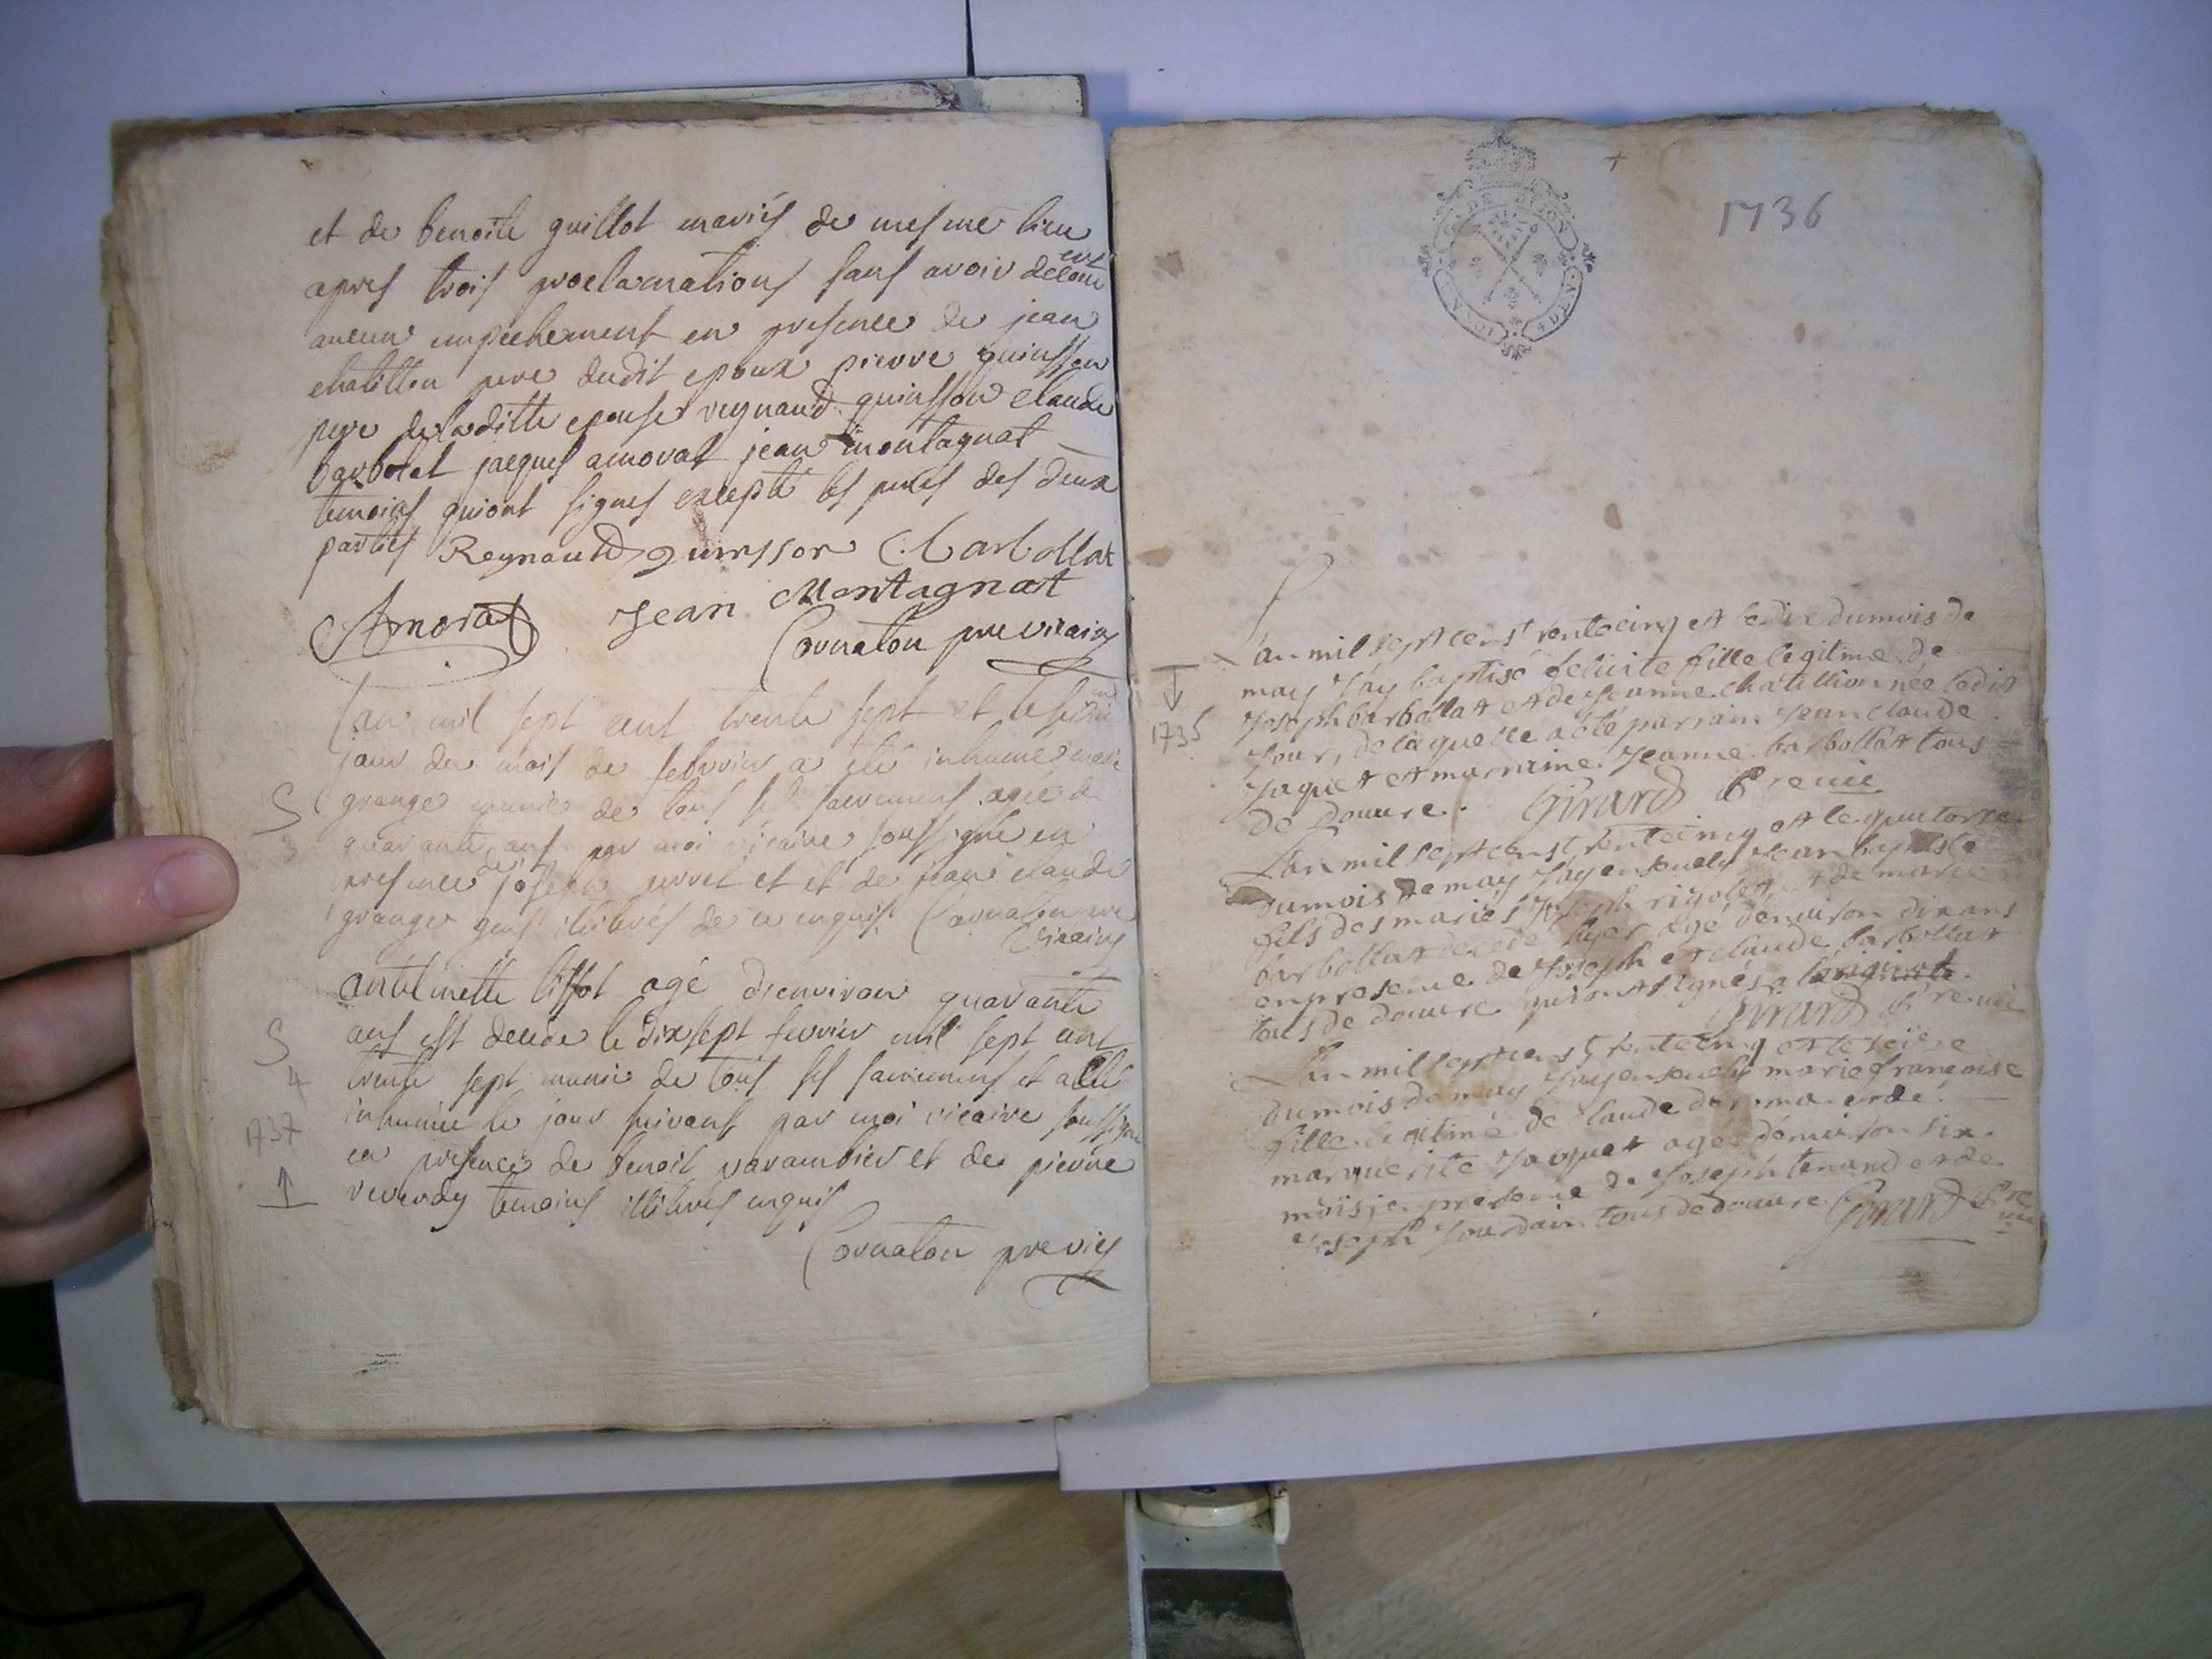 et de benoite guillot mariés de mesme lieu
apres trois proclamations sans avoir decouvert
aucun empechement en presence de jean
chatillon pere dudit epoux pierre quinsson
pere de laditte epouse reynaud quinsson claude
barbolat jacques amorat jean montagnat
temoins qui ont signes excepté les peres des deux
parties Reynaud quinsson C. barbollat
Amorat Jean Montagnat
Cornaton pre vicaire
Lan mil sept cent trente sept et le
jour du mois de febvrier a été inhumé marie
grange munie de tous ses sacremens agée de
quarante ans par moi vicaire soussigné en
presence de joseph et et de jean claude
grange gens illitérés de ce enquis Cornaton pre
vicaire
S
3
anthelmette liffot agé denviron quarante
ans est decedé le dix sept fevrier mil sept cent
trente sept munie de tous ses sacremens et a été
inhumée le jour suivant par moi vicaire soussigné
en presence de benoit varambier et de pierre
reverdy temoins illiterés enquis
Cornaton pre vic
S
4
1737
1736
UN SOL 4 DEN
1735
Lan mil sept cens trente cinq et le dix du mois de
may j'ay baptisé felicité fille legitime de
Joseph barbollat et de Jeanne chatillion née ledit
Jour, de laquelle a été parrain Jean claude
Jaquet et marraine Jeanne barbollat tous
de Douvre. Girard Pre vic
Lan mil sept cens trente cinq et le quatorze
du mois de may j'ay enseuely Jean baptiste
fils des mariés Joseph rigolet et de marie
barbollat decedé hyer agé denviron dix ans
en presence de Joseph et claude barbollat
tous de douvre qui ont signés a l'original.
Girard Pre vic
Lan mil sept cens trente cinq et le seize
du mois de may j'ay enseuely marie françoise
fille legitime de claude et de
marguerite Jaquet agée denviron six
mois, en presence de Joseph tenand et de
Joseph Jourdain tous de douvre. Girard Pre vic